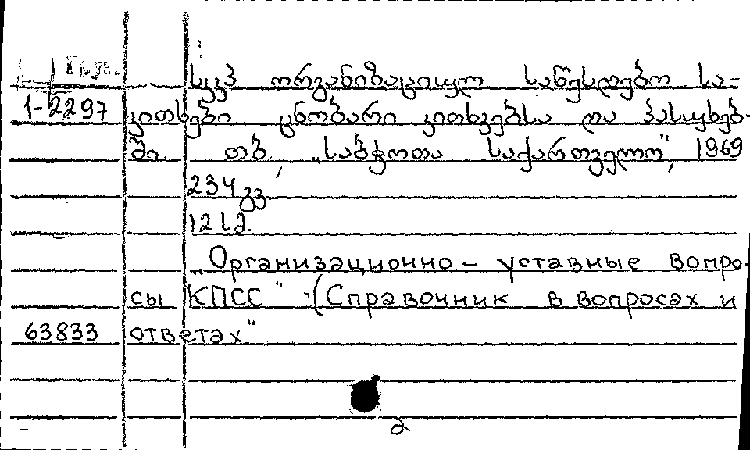 სკკპ ორგანიზაციულ საწესდებო სა-
1-2297 კითხები ცნობარი კითხვებსა და პასუხებ-
ში. თბ., „საბჭოთა საქართველო", 1969
234 გვ.
12 სმ.
„Организационно-уставные вопро-
сы КПСС" (Справочник в вопросах и
63833 ответах"